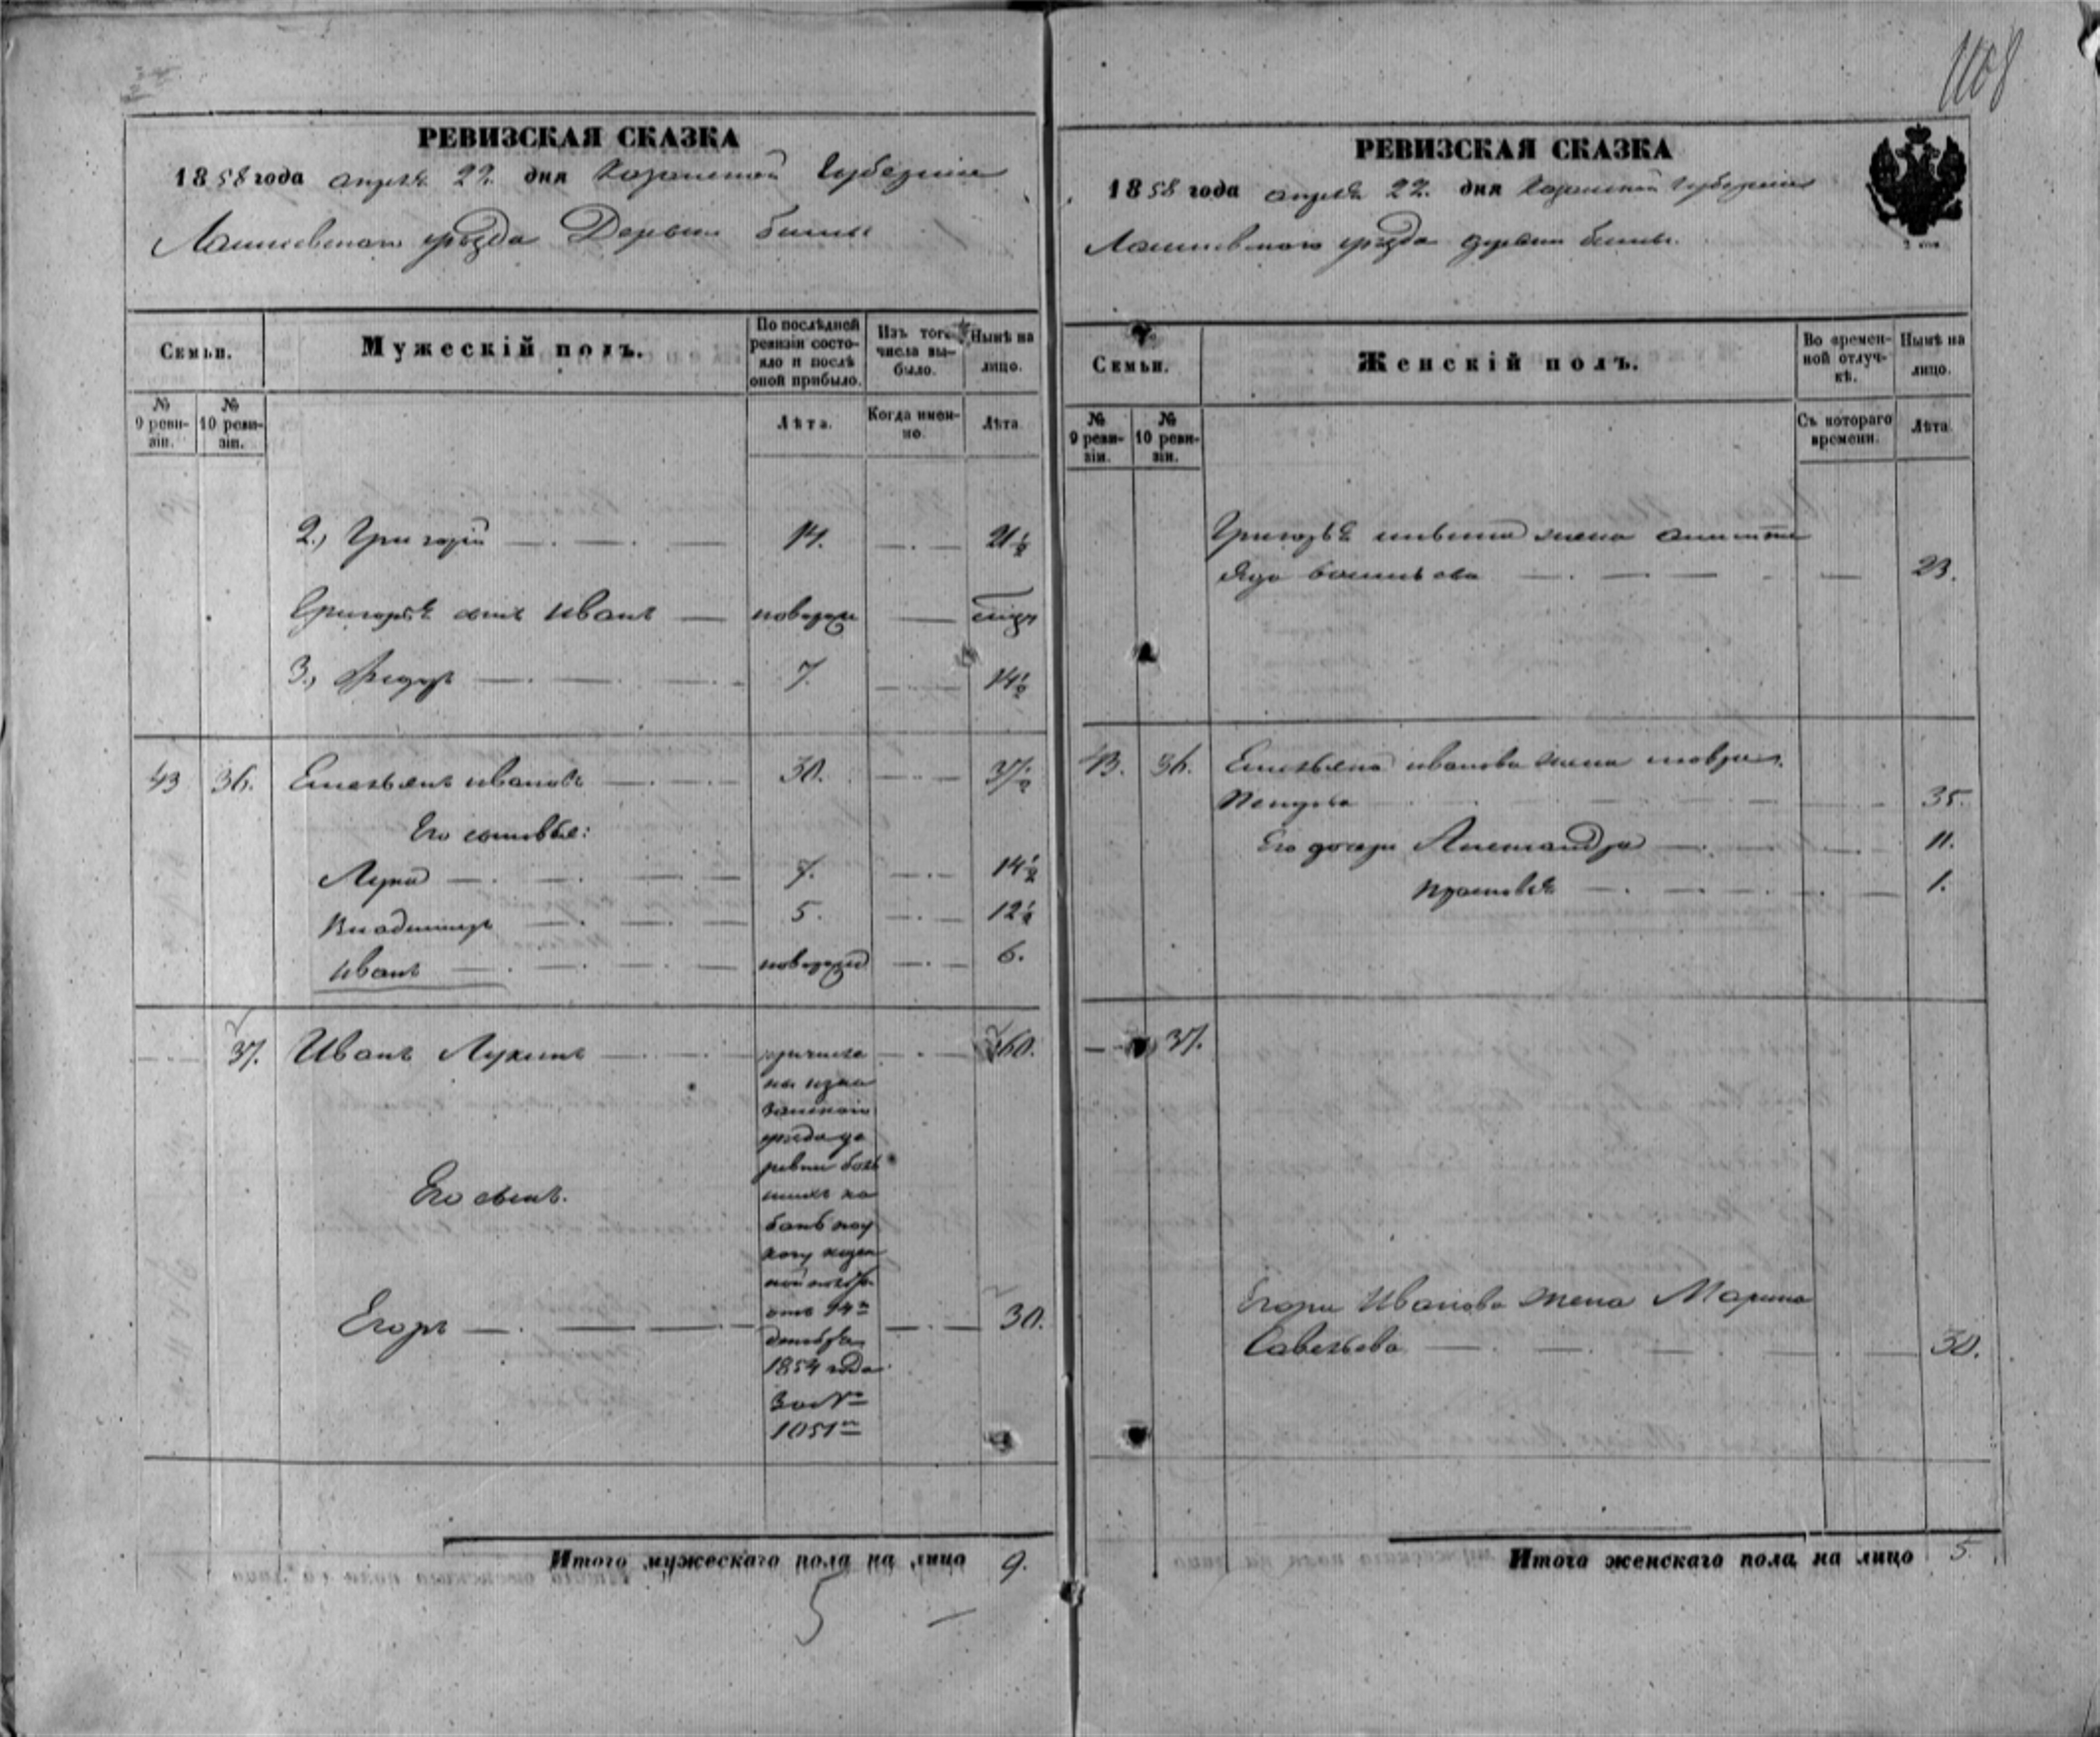 1108
РЕВИЗСКАЯ СКАЗКА
1858 года апреля 22 дня Казанской Губернии
Лаишевскаго уезда Деревни
Семьи.
Мужескій полъ.
По послѣдней ревизіи состояло и послѣ оной прибыло.
Изъ того числа выбыло.
Нынѣ на лицо.
№ 9 ревизіи.
№ 10 ревизіи.
Лѣта.
Когда именно.
Лѣта.
2., Григорій 14. 21½
Григорья сынъ Иванъ
3., Федоръ 7. 14½
43 36. Емельянъ Ивановъ 30. 37½
Его сыновья:
Лука 7. 14½
Владимиръ 5. 12½
Иванъ 6.
37. Иванъ Лукинъ 60.
Его сынъ.
Егоръ 30.
уезда де
ревни Боль
шихъ Ка
банъ по у
казу казен
ной палаты
отъ 14го
декабря
1854 года
за №м
1051м
Итого мужескаго пола на лицо 9.
5
РЕВИЗСКАЯ СКАЗКА
1858 года апреля 22. дня Казанской Губернии
Лаишевскаго уезда деревни
Семьи.
Женскій полъ.
Во временной отлучкѣ.
Нынѣ на лицо.
№ 9 ревизіи.
№ 10 ревизіи.
Съ котораго времени.
Лѣта.
Григорья жена
23.
43. 36. Емельяна Иванова жена Мавра
35.
Его дочери Александра 11.
Прасковья 1.
37.
Егора Иванова жена Марина
Савельева 30.
Итого женскаго пола на лицо 5